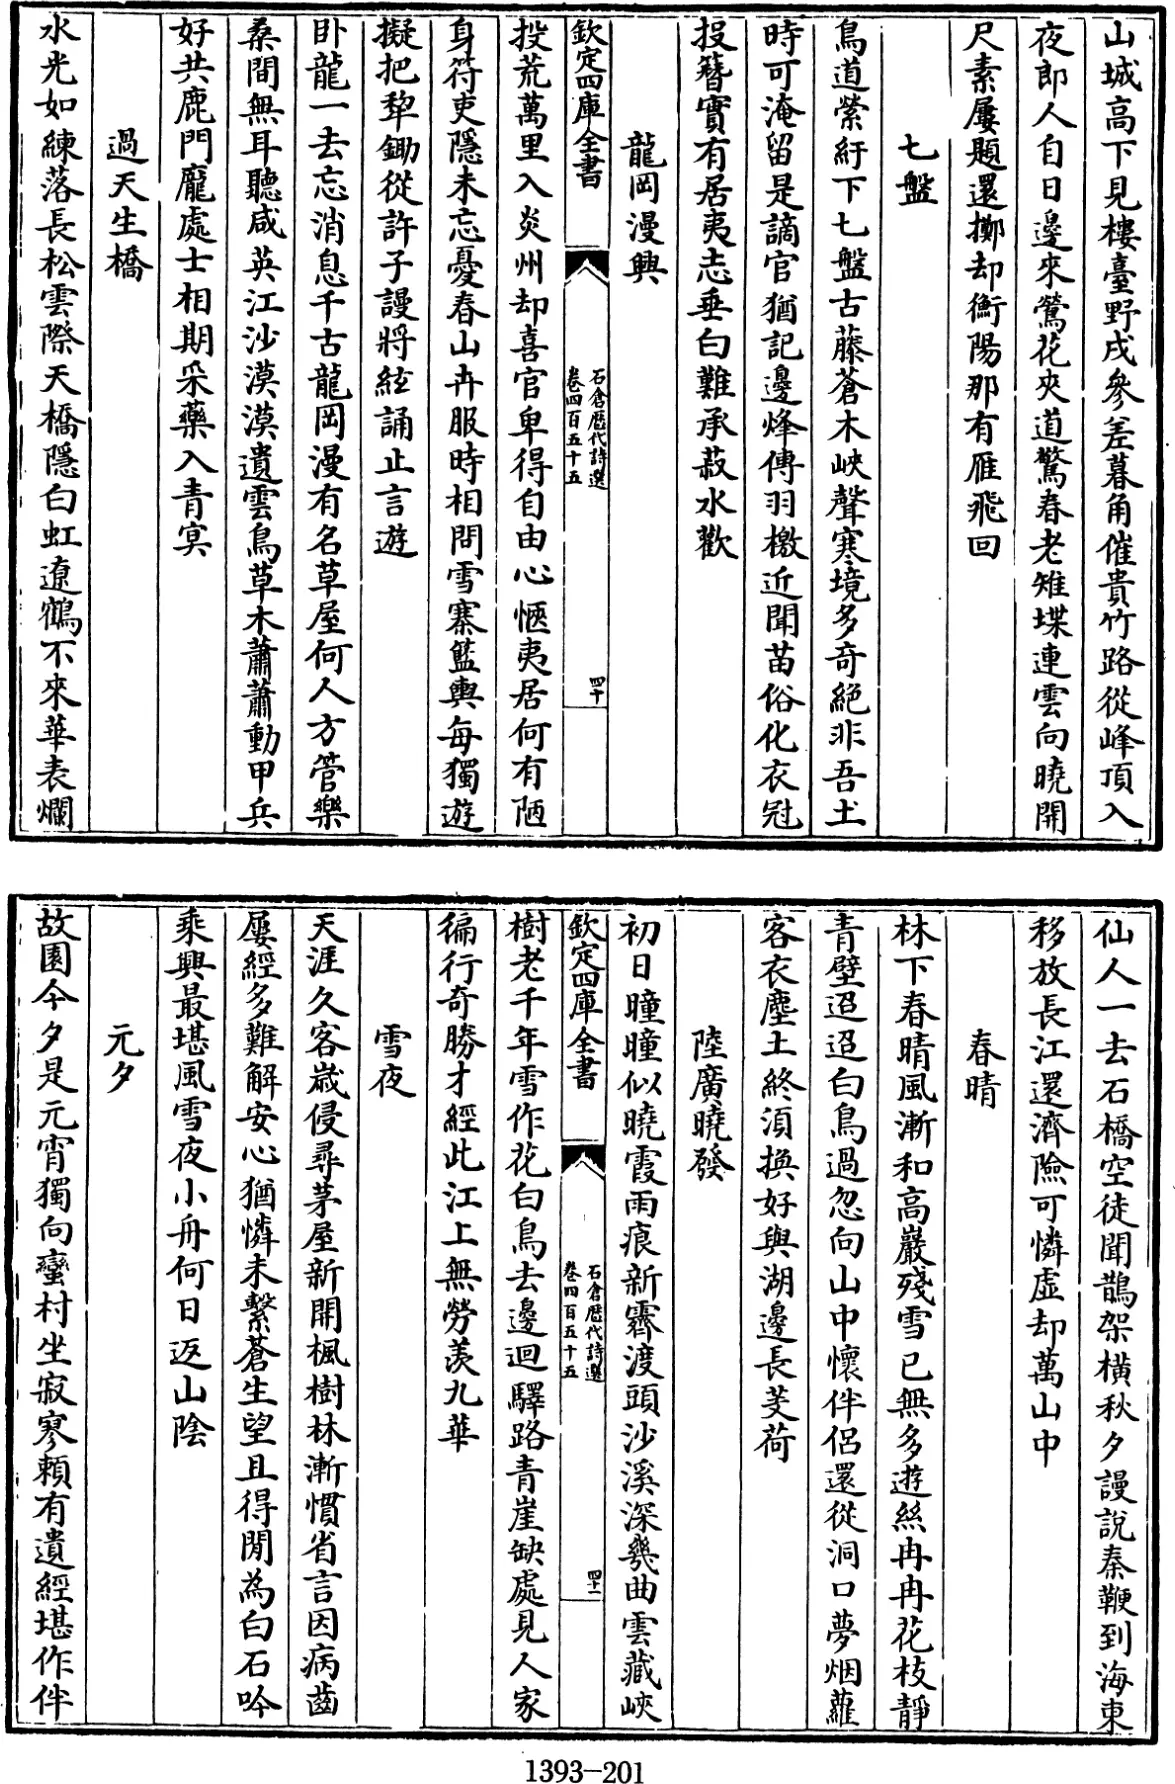 山城高下見樓臺野戍參差暮角催貴竹路從峰頂入
夜郎人自日邊來鶯花夾道驚春老雉堞連雲向曉開
尺素屢題還擲却衡陽那有雁飛回
七盤
鳥道縈紆下七盤古藤蒼木峽聲寒境多奇絶非吾土
時可淹留是謫官猶記邊烽傳羽檄近聞苗俗化衣冠
投簪實有居夷志垂白難承菽水歡
龍岡漫興
欽定四庫全書
石倉歷代詩選
卷四百五十五
四十
投荒萬里入炎州却喜官卑得自由心愜夷居何有陋
身符吏隱未忘憂春山卉服時相問雪寨籃輿每獨遊
擬把犂鋤從許子謾將絃誦止言遊
卧龍一去忘消息千古龍岡漫有名草屋何人方管樂
桑間無耳聽咸英江沙漠漠遺雲鳥草木蕭蕭動甲兵
好共鹿門龐處士相期采藥入青冥
過天生橋
水光如練落長松雲際天橋隱白虹遼鶴不來華表爛
仙人一去石橋空徒聞鵲架橫秋夕謾說秦鞭到海東
移放長江還濟險可憐虛却萬山中
春晴
林下春晴風漸和高巖殘雪已無多遊絲冉冉花枝靜
青壁迢迢白鳥過忽向山中懷伴侶還從洞口夢烟蘿
客衣塵土終須換好與湖邊長芰荷
陸廣曉發
初日曈曈似曉霞雨痕新霽渡頭沙溪深幾曲雲藏峽
欽定四庫全書
石倉歷代詩選
卷四百五十五
四十一
樹老千年雪作花白鳥去邊迴驛路青崖缺處見人家
徧行奇勝才經此江上無勞羨九華
雪夜
天涯久客嵗侵尋茅屋新開楓樹林漸慣省言因病齒
屢經多難解安心猶憐未繫蒼生望且得閒為白石吟
乘興最堪風雪夜小舟何日返山陰
元夕
故園今夕是元宵獨向蠻村坐寂寥賴有遺經堪作伴
1393-201